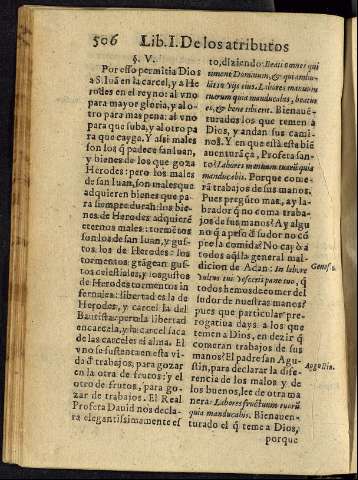 506 Lib. I. De los atributos
§. V.
Por esso permitia Dios
a S. Iuā en la carcel, y a He
rodes en el reyno: al vno
para mayor gloria, y al o-
tro para mas pena: al vno
para que suba, y al otro pa
ra que cayga. Y assi males
son los q̄ padece san Iuan,
y bienes de los que goza
Herodes: pero los males
de san Iuan, son males que
adquieren bienes que pa-
ra siempre duran: los bie-
nes de Herodes adquierē
eternos males: tormētos
son los de san Iuan, y gus-
tos los de Herodes: los
tormentos grāgean gus-
tos celestiales, y los gustos
de Herodes tormentos in
fernales: libertad es la de
Herodes, y carcel la del
Bautista: pero la libertad
encarcela, y la carcel saca
de las carceles al alma. El
vno se sustenta en esta vi-
da d̄ trabajos, para gozar
en la otra de frutos: y el
otro de frutos, para go-
zar de trabajos. El Real
Profeta Dauid nos decla-
ra elegantissimamente es
to, diziendo: Beati omnes qui
timent Dominum, & qui ambu-
lāt in vijs eius. Labores manuum
tuarum quia manducabis, beatus
es, & bene tibi erit. Bienauē-
turados los que temen a
Dios, y andan sus cami-
nos. Y en que està esta biē
auenturāça, Profeta san-
to? Labores manuum tuarū quia
manducabis. Porque come-
rā trabajos de sus manos.
Pues pregūto mas, ay la-
brador q̄ no coma traba-
jos de sus manos? Ay algu
no q̄ a peso d̄ sudor no cō
pre la comida? No cayò a
todos aq̄lla general mal-
dicion de Adan: In labore Genes.
vultus tui vesceris pane tuo, q̄
todos hemos de comer del
sudor de nuestras manos?
pues que particular pre-
rogatiua days a los que
temen a Dios, en dezir q̄
comeran trabajos de sus
manos? El padre san Agu- Augustin.
stin, para declarar la dife-
rencia de los malos y de
los buenos, lee de otra ma
nera: Labores fructuum tuarū
quia manducabis. Bienauen-
turado el q̄ teme a Dios,
porque